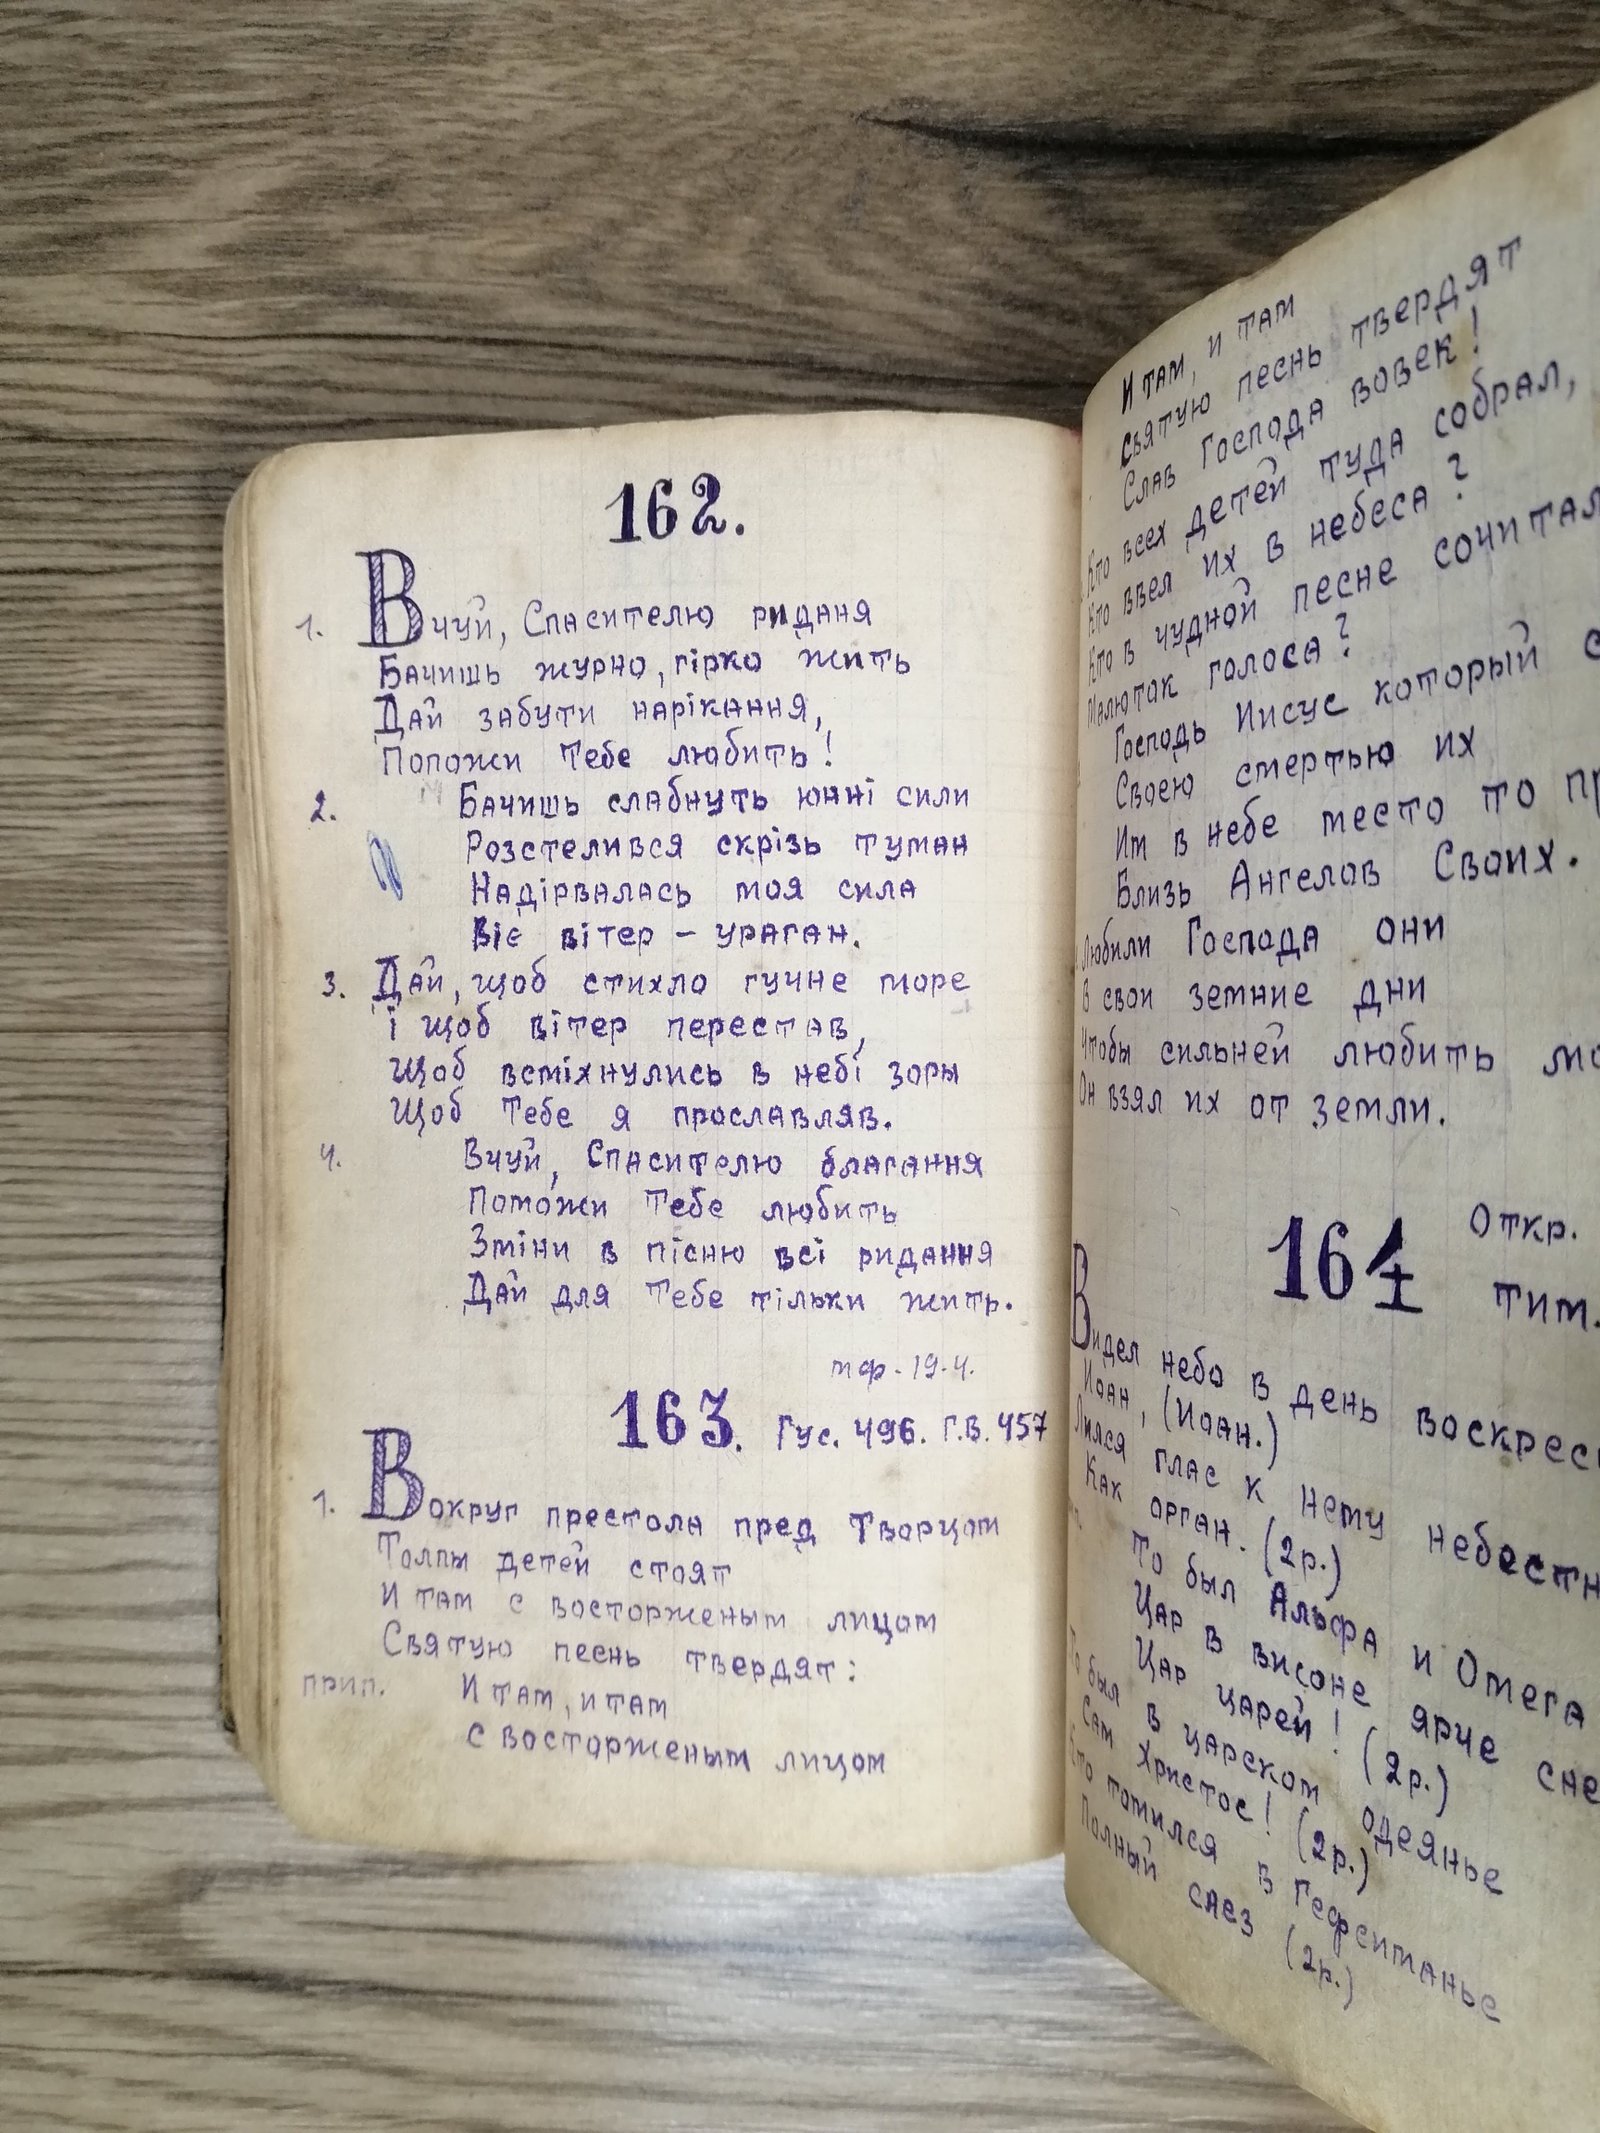 162.
1. Вчуй, Спасителю ридання
Бачишь журно, гірко жить
Дай забути нарікання,
Поможи Тебе любить!
2. Бачишь слабнуть юнні сили
Розстелився скрізь туман
Надірвалась моя сила
Віє вітер - ураган.
3. Дай, щоб стихло гучне море
і щоб вітер перестав,
Щоб всміхнулись в небі зоры
Щоб Тебе я прославляв.
4. Вчуй, Спасителю благання
Поможи Тебе любить
Зміни в пісню всі ридання
Дай для Тебе тільки жить.
мф. 19.4.
163. Гус. 496. Г.В. 457
1. Вокруг престола пред Творцом
Толпы детей стоят
И там с восторженым лицом
Святую песнь твердят:
прип. И там, и там
с восторженым лицом
И там, и там
Святую песнь твердят
Слав Господа вовек!
Кто всех детей туда собрал,
Кто ввел их в небеса?
Кто в чудной песне сочитал
Малюток голоса?
Господь Иисус который
Своею смертью их
Им в небе место то
Близь Ангелов Своих.
Любили Господа они
В свои земние дни
Чтобы сильней любить
Он взял их от земли.
164 Откр.
Тим.
Видел небо в день
Иоан, (Иоан.)
Лился глас к нему
Как орган. (2р.)
То был Альфа и Омега
Цар в висоне ярче
Цар царей! (2р.)
То был в царском одеянье
Сам Христос! (2р.)
Кто томился в Гефсиманье
Полный слез (2р.)